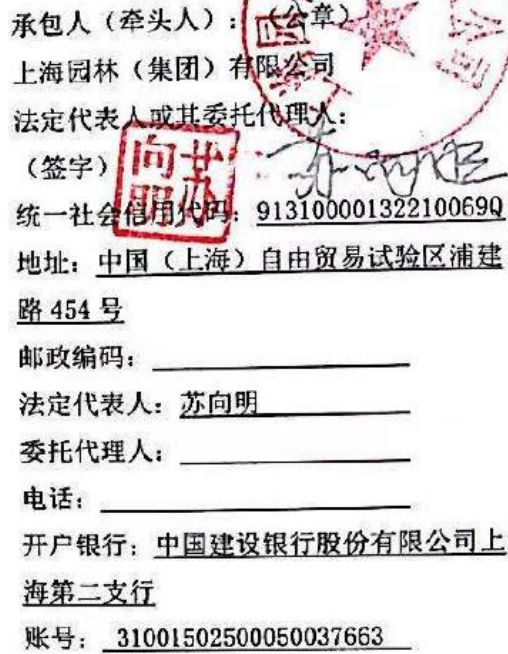 承包人（牵头人）：（公章）
上海园林（集团）有限公司
法定代表人或其委托代理人：
（签字）
统一社会信用代码：91310000132210069Q
地址：中国（上海）自由贸易试验区浦建
路 454 号
邮政编码：
法定代表人：苏向明
委托代理人：
电话：
开户银行：中国建设银行股份有限公司上
海第二支行
账号：31001502500050037663